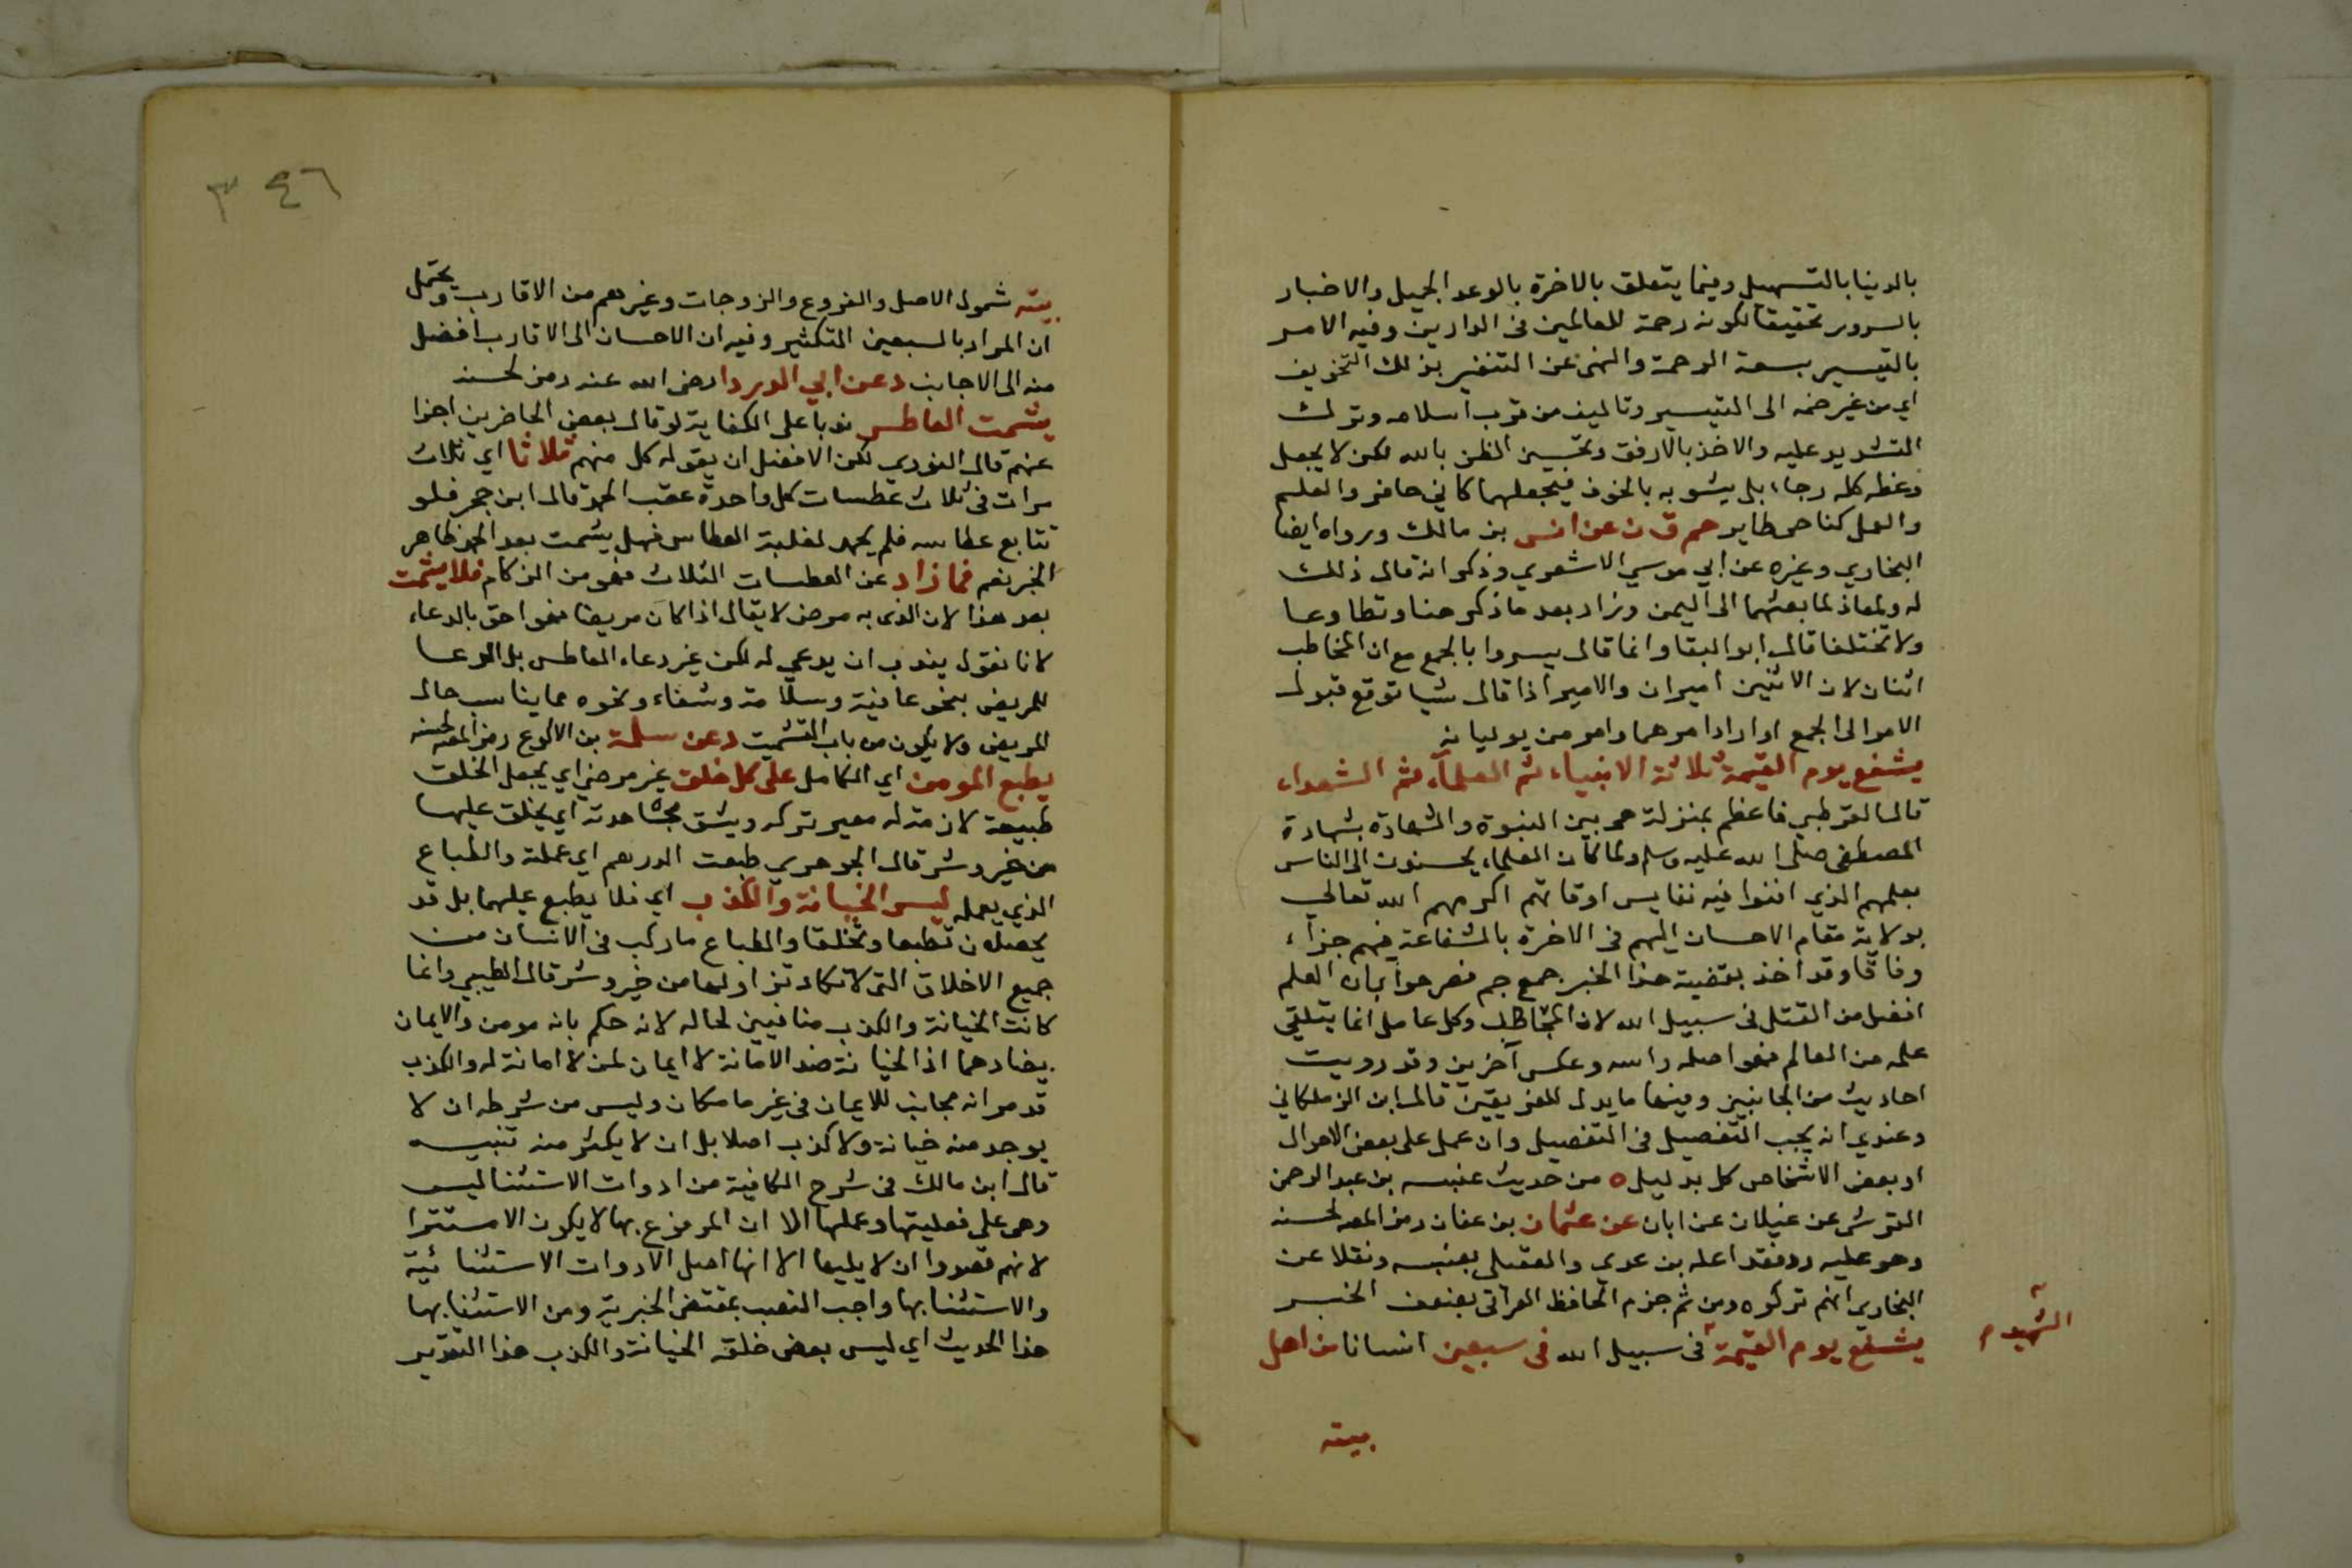 بالدنيا بالتسهيل وفيما يتعلق بالاخرة بالوعد الجميل والاخبار
بالسرور تحقيقا لكونه رحمة للعالمين فى الدارين وفيه الامر
بالتيسير بسعة الرحمة والنهى عن التنفير بذلك التخويف
اي من غير ضمه الى التيسير وتاليف من قرب اسلامه وترك
التشديد عليه والاخذ بالارفق وتحسين الظن بالله لكن لا يجعل
وعظه كله رجاء بل يشوبه بالخوف فيجعلهما كاني حافر والعلم
والعمل كناحى طاير حم ق ن عن انس بن مالك ورواه ايضا
البخاري وغيره عن ابي موسي الاشعري وذكر انه قال ذلك
له ولمعاذ لما بعثهما الى اليمن وزاد بعد ما ذكر هنا وتطاوعا
ولا تختلفا قال ابو البقا وانما قال يسروا بالجمع مع ان المخاطب
اثنان لان الاثنين اميران والامير اذا قال شيا توقع قبول
الامر الى الجمع او اراد امرهما وامر من يوليانه
يشفع يوم القيمة ثلاثة الانبياء ثم العلماء ثم الشهداء
قال القرطبي فاعظم بمنزلة هى بين النبوة والشهادة بشهادة
المصطفى صلى الله عليه وسلم ولما كان العلماء يحسنون الى الناس
بعلمهم الذي افنوا فيه نفايس اوقاتهم اكرمهم الله تعالي
بولاية مقام الاحسان اليهم فى الاخرة بالشفاعة فيهم جزاء
وفاقا وقد اخذ بقضية هذا الخبر جمع جم فصرحوا بان العلم
افضل من القتل فى سبيل الله لان المجاهد وكل عامل انما يتلقي
علمه من العالم فهو اصله واسه وعكس آخرين وقد رويت
احاديث من الجانبين وفيها ما يدل للفريقين قال ابن الزملكاني
وعندي انه يجب التفصيل فى التفضيل وان عمل على بعض الاحوال
او بعض الاشخاص كل بدليل ه من حديث عنبسه بن عبد الرحمن
القرشى عن غيلان عن ابان عن عثمان بن عفان رمز المصه لحسنه
وهو عليه رد فقد اعله بن عدي والعقيلى بعنبسه ونقلا عن
البخاري انهم تركوه ومن ثم جزم الحافظ العراقى بضعف الخبر
يشفع يوم القيمة فى سبيل الله فى سبعين انسانا من اهل
الشهيد م
بيته
٣٤٦
بيته شمول الاصل والفروع والزوجات وغيرهم من الاقارب ويحتمل
ان المراد بالسبعين التكثير وفيه ان الاحسان الى الاقارب افضل
منه الى الاجانب د عن ابي الدردا رضى الله عنه رمز لحسنه
يشمت العاطس ندبا على الكفاية لو قال بعض الحاضرين اجزا
عنهم قال النووي لكن الافضل ان يقوله كل منهم ثلاثا اي ثلاث
مرات فى ثلاث عطسات كل واحدة عقب الحمد قال ابن حجر فلو
تتابع عطاسه فلم يحمد لغلبة العطاس فهل يشمت بعد الحمد ظاهر
الخبر نعم فما زاد عن العطسات الثلاث فهو من الزكام فلا يشمت
بعد هذا لان الذى به مرض لا يقال اذا كان مريضا فهو احق بالدعاء
لانا نقول يندب ان يدعي له لكن غير دعاء العاطس بل الدعا
للمريض بنحو عافية وسلامة وشفاء ونحوه مما يناسب حال
المريض ولا يكون من باب التشميت د عن سلمة بن الاكوع رمز المصه لحسنه
يطبع المومن اي الكامل على كل خلق غير مرضي اي يجعل الخلق
طبيعة لازمة له معسر تركه ويشق مجاهدته اي يخلق عليها
من خير وشر قال الجوهري طبعت الدرهم اي عملته والطباع
الذي يعمله ليس الخيانة والكذب اي فلا يطبع عليهما بل قد
يحصلان تطبعا وتخلقا والطباع ما ركب فى الانسان من
جميع الاخلاق التى لا تكاد تزاولها من خير وشر قال الطيبي وانما
كانت الخيانة والكذب منافيين لحاله لانه حكم بانه مومن والايمان
يضادهما اذ الخيانة ضد الامانة لا ايمان لمن لا امانة له والكذب
قد مر انه مجانب للايمان فى غير ما مكان وليس من شرطه ان لا
يوجد منه خيانة ولا كذب اصلا بل ان لا يكثر منه تنبيه
قال ابن مالك فى شرح الكافية من ادوات الاستثنا ليس
وهى على فعليتها وعملها الا ان المرفوع بها لا يكون الا مستترا
لانهم قصدوا ان لا يليها الا انها اصل الادوات الاستثنائية
والاستثنا بها واجب النصب بمقتضى الخبرية ومن الاستثنا بها
هذا الحديث اي ليس بعض خلقه الخيانة والكذب هذا التقدير